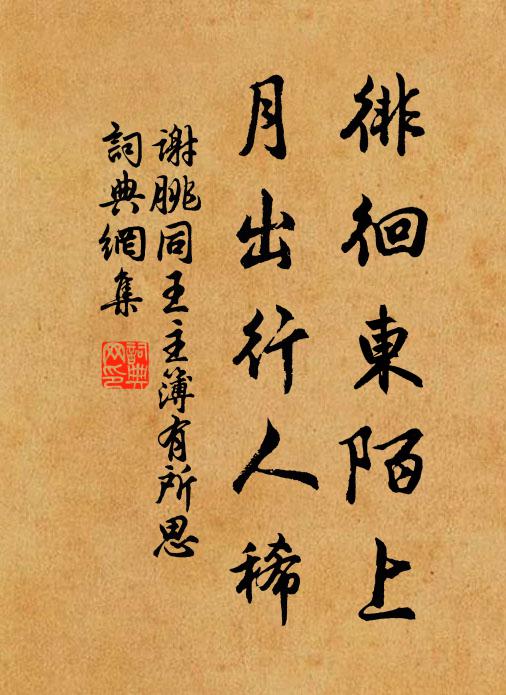 徘徊東陌上
月出行人稀
謝朓同王主簿有所思
詞典網集
詞典
網印